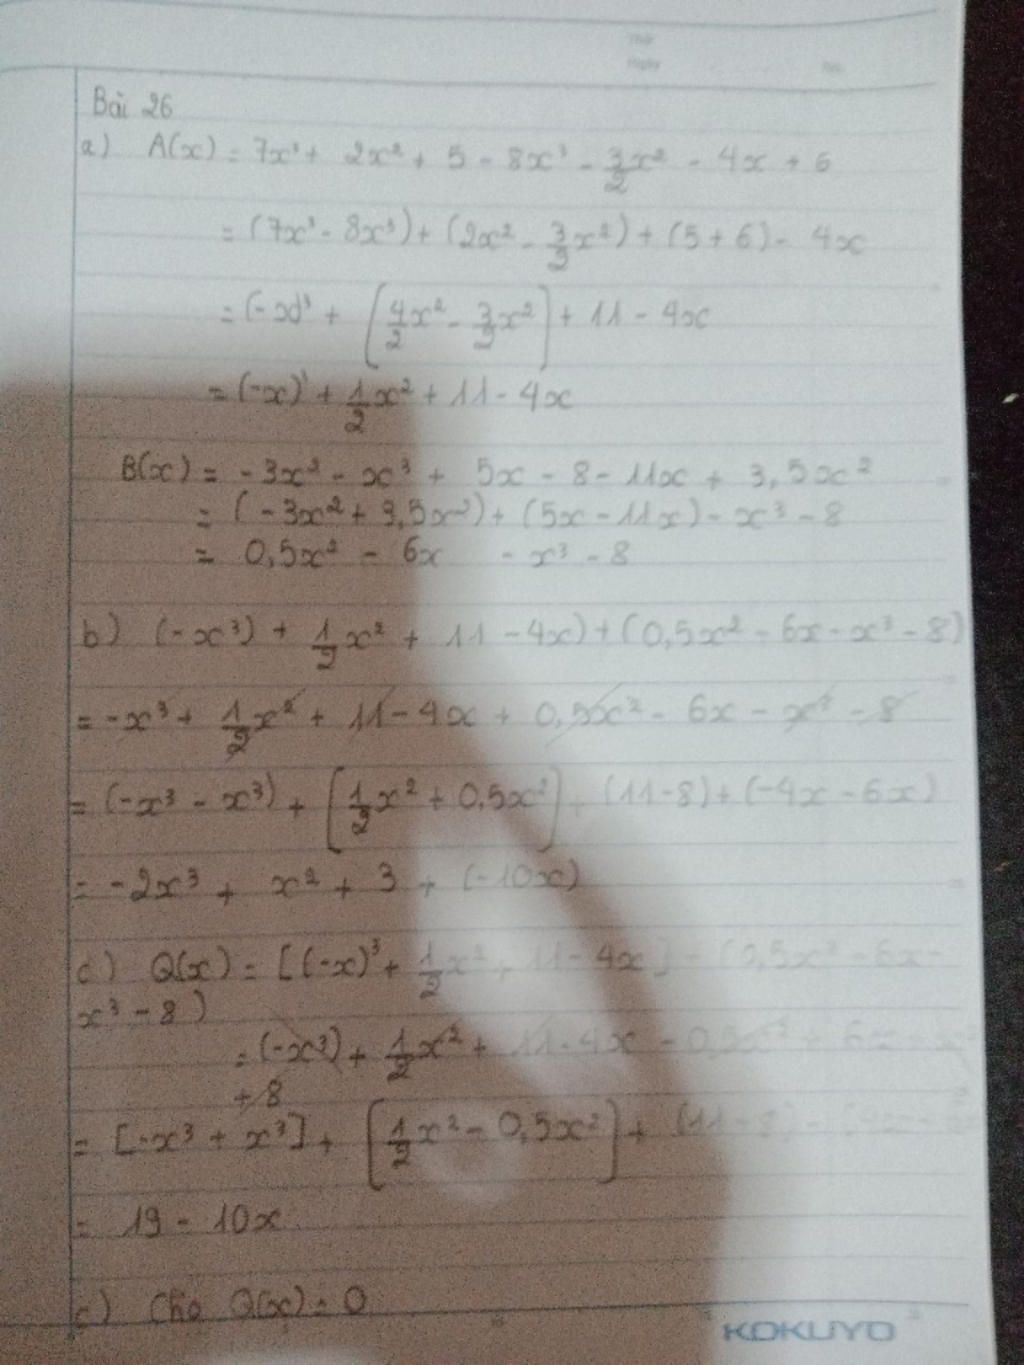 Thứ
Ngày
No.
Bài 26
a) A(x) = 7x³ + 2x² + 5 - 8x³ - 3/2x² - 4x + 6
= (7x³ - 8x³) + (2x² - 3/2x²) + (5 + 6) - 4x
= (-x)³ + [4/2x² - 3/2x²] + 11 - 4x
= (-x)³ + 1/2x² + 11 - 4x
B(x) = - 3x² - x³ + 5x - 8 - 11x + 3,5x²
= (-3x² + 3,5x²) + (5x - 11x) - x³ - 8
= 0,5x² - 6x - x³ - 8
b) (-x³) + 1/2x² + 11 - 4x) + (0,5x² - 6x - x³ - 8)
= -x³ + 1/2x² + 11 - 4x + 0,5x² - 6x - x³ - 8
= (-x³ - x³) + [1/2x² + 0,5x²] + (11-8) + (-4x - 6x)
= -2x³ + x² + 3 + (-10x)
c) Q(x) = [(-x)³ + 1/2x² + 11 - 4x] - (0,5x² - 6x -
x³ - 8)
= (-x³) + 1/2x² + 11 - 4x - 0,5x² + 6x
+ 8
= [-x³ + x³] + [1/2x² - 0,5x²] + (11
= 19 - 10x
c) Cho Q(x) = 0
KOKUYO